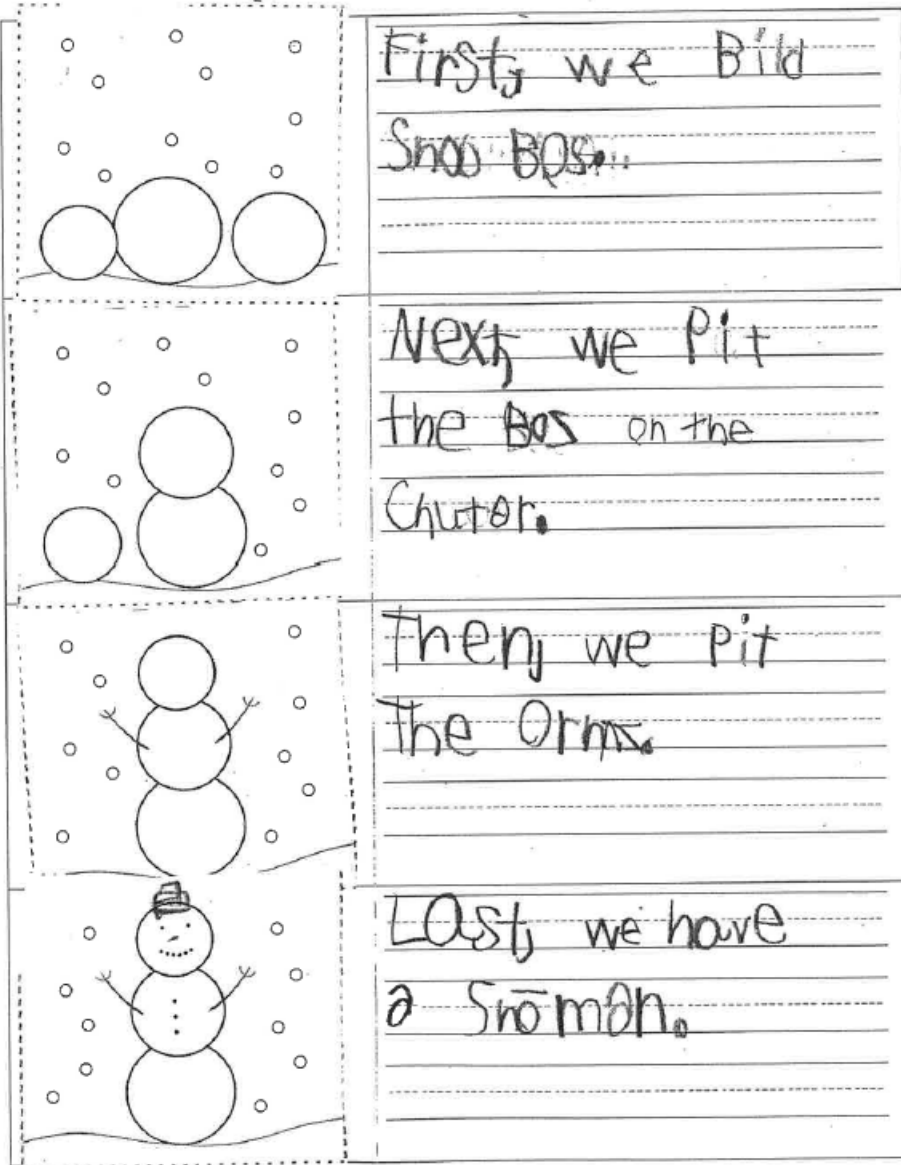 First, we Bild
Snoo Bos.
Next, we Pit
the Bos on the
Chuter.
Then, we Pit
The Orms.
LAst, we have
a Snōman.